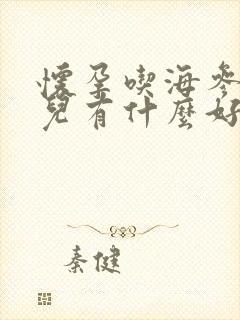 懷孕喫海參
兒有什麼好
秦健